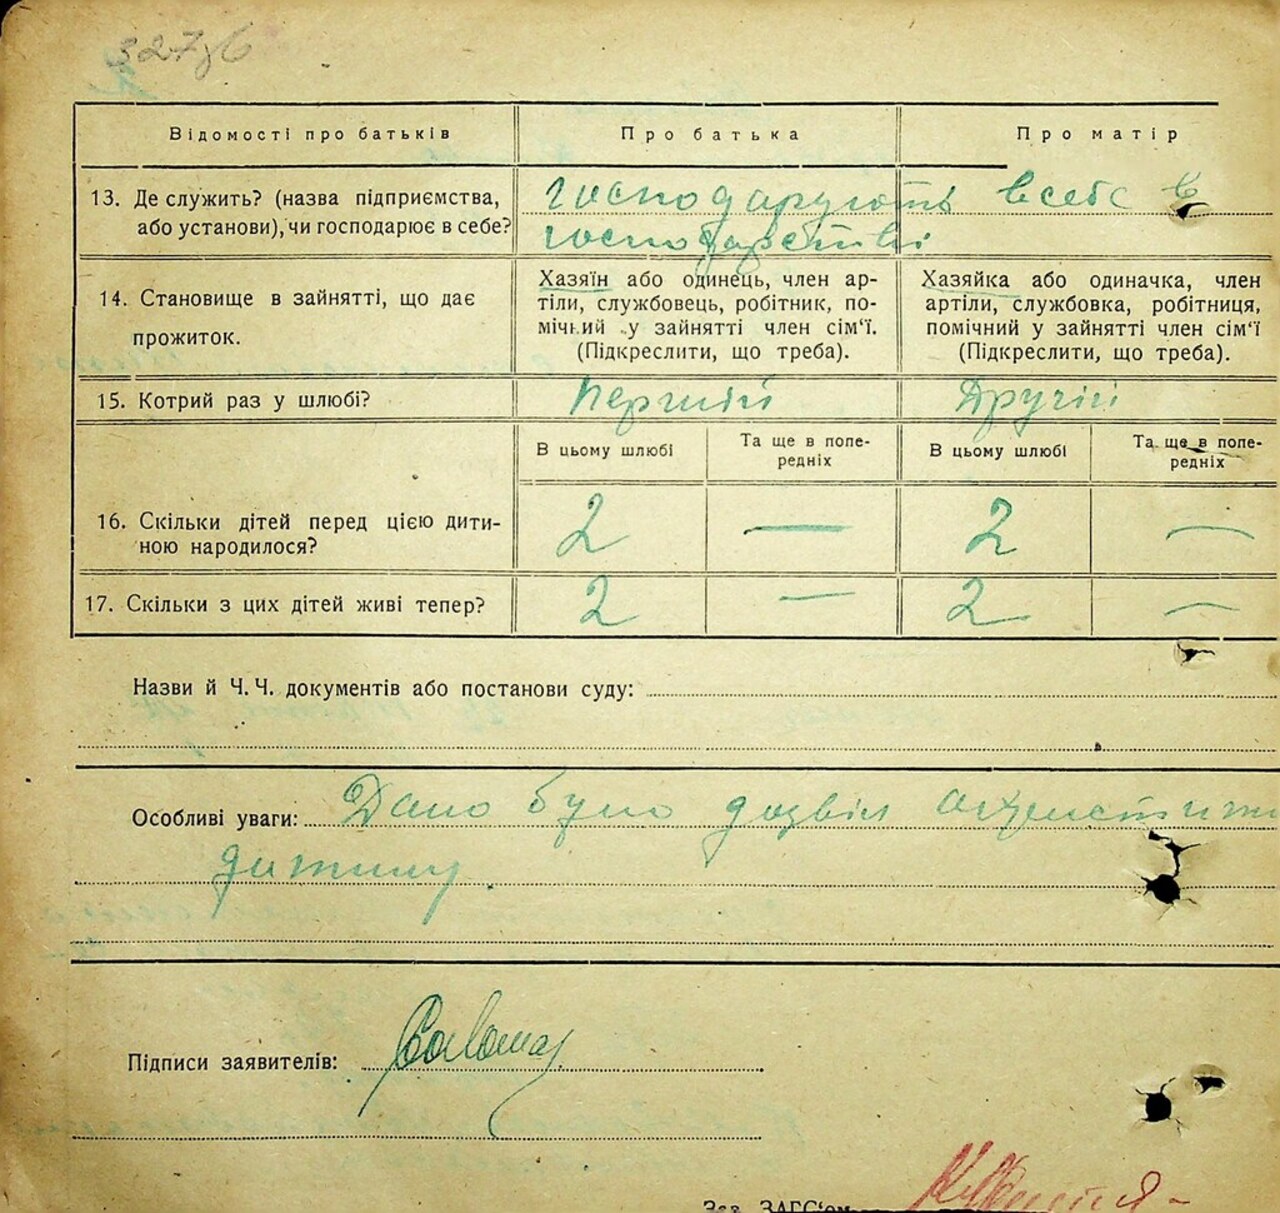 Відомості про батьків
Про батька
Про матір
13. Де служить? (назва підприємства,
або установи), чи господарює в себе?
господарують в себе в
господарстві
14. Становище в зайнятті, що дає
прожиток.
Хазяїн або одинець, член ар-
тіли, службовець, робітник, по-
мічний у зайнятті член сім'ї.
(Підкреслити, що треба).
Хазяйка або одиначка, член
артіли, службовка, робітниця,
помічний у зайнятті член сім'ї
(Підкреслити, що треба).
15. Котрий раз у шлюбі?
Перший
Другій
В цьому шлюбі
Та ще в попе-
редніх
В цьому шлюбі
Та ще в попе-
редніх
16. Скільки дітей перед цією дити-
ною народилося?
2 — 2 —
17. Скільки з цих дітей живі тепер?
2 — 2 —
Назви й Ч. Ч. документів або постанови суду:
Особливі уваги: Дано було дозвіл
дитину.
Підписи заявителів:
Зав. ЗАГС'ом